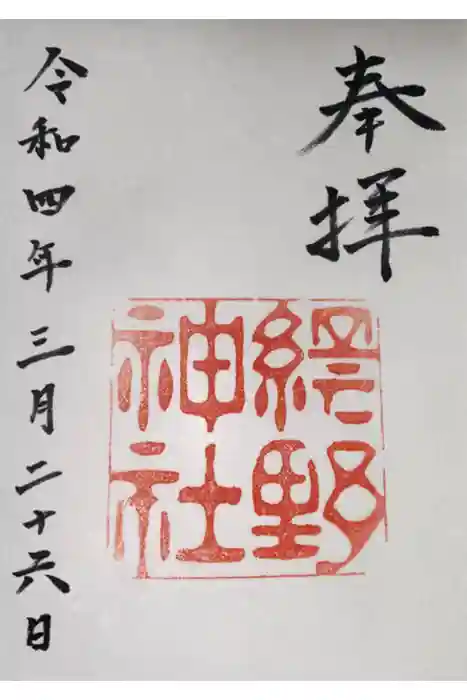 奉拝
網野
神社
令和四年三月二十六日